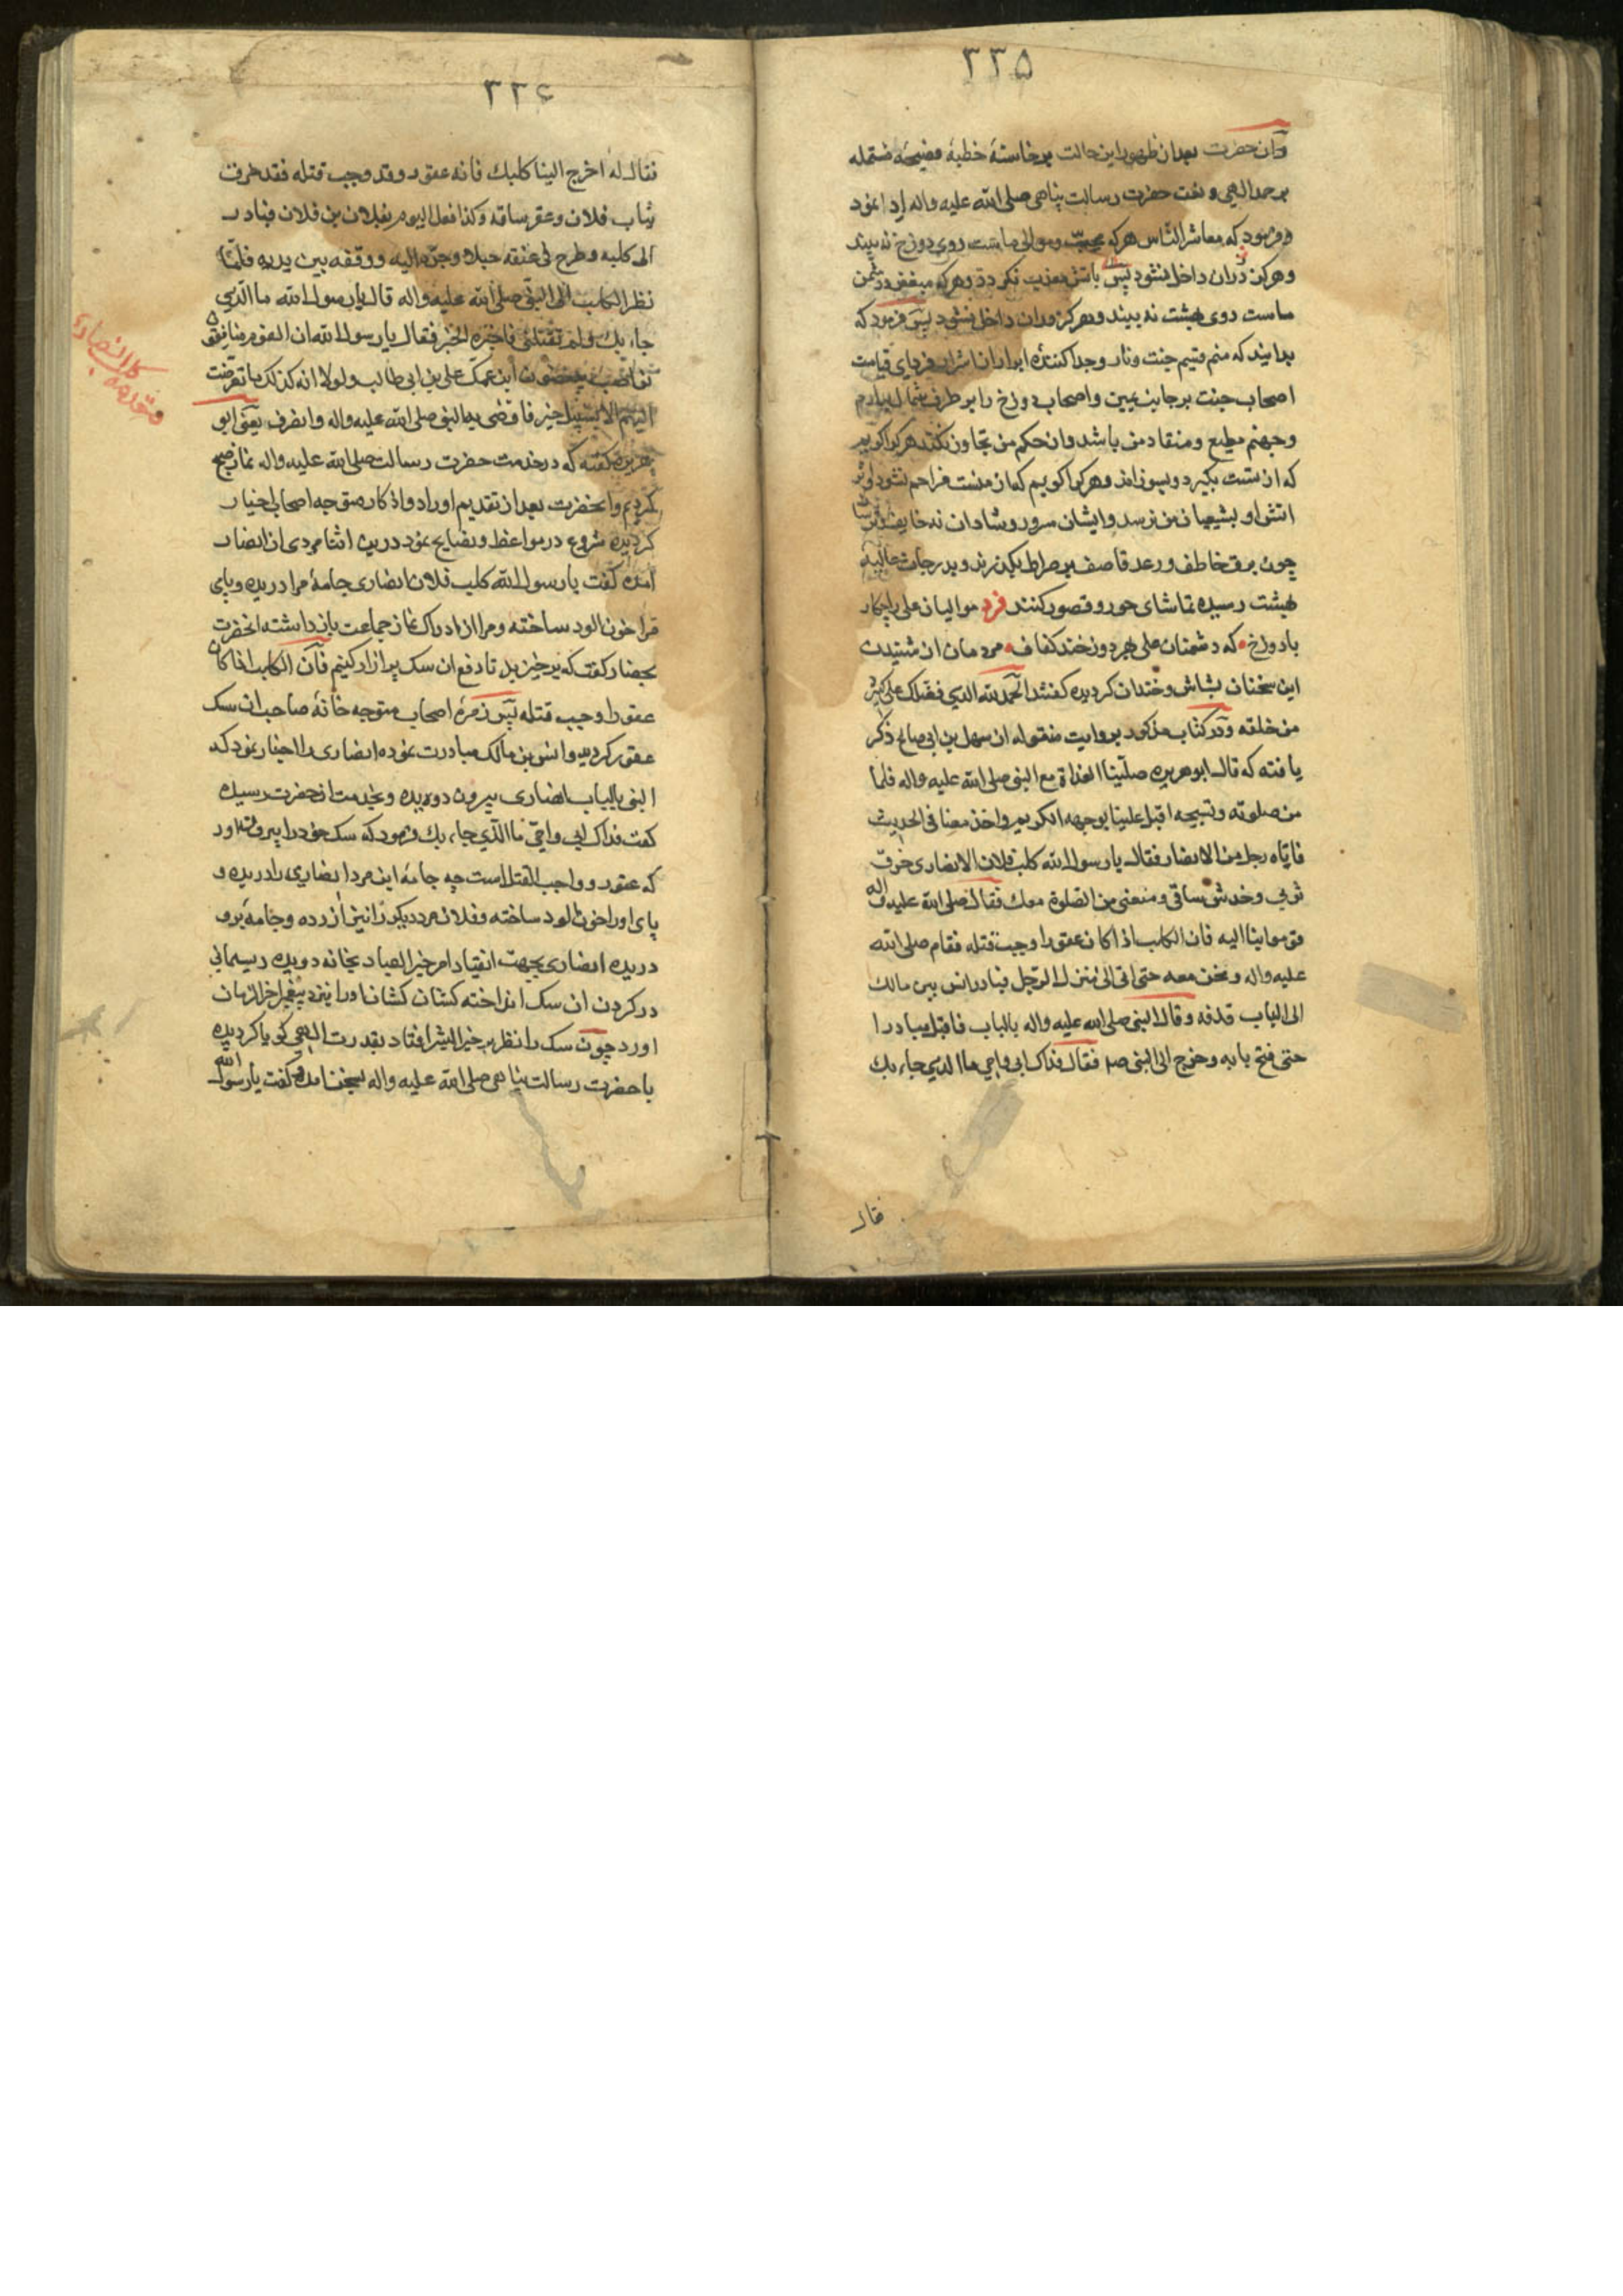 ۳۳۵
وآن حضرت بعد از ظهور این حالت برخاسته خطبهٔ فصیحهٔ مشتمله
بر حمد الهی و نعت حضرت رسالت پناهی صلی الله علیه واله ادا نمود
و فرمود که معاشر الناس هر که محب و موالی ماست روی دوزخ نه بیند
و هرکز در آن داخل نشود پس باتش معذب نکردد و هر که مبغض و دشمن
ماست روی بهشت نه بیند و هرکز در آن داخل نشود پس فرمود که
بدانید که منم قسیم جنت و نار و جدا کنندهٔ ابرار از اشرار فردای قیامت
اصحاب جنت بر جانب یمین و اصحاب دوزخ را بر طرف شمال بیارم
و جهنم مطیع و منقاد من باشد و از حکم من تجاوز نکند هر کرا کویم
که از تست بکیرد و بسوزاند و هر کرا کویم که از منست مزاحم نشود و اثر
اتش او بشیعیان من نرسد و ایشان مسرور و شادان نه خایف
چون برق خاطف و رعد قاصف بر صراط بکذرند و بدرجات عالیه
بهشت رسیده تماشای حور و قصور کنند فرد موالیان علی را چکار
با دوزخ که دشمنان علی بهر دوزخند کفاف مردمان از شنیدن
این سخنان بشاش و خندان کردیده کفتند الحمد لله الذی فضلک علی کثیر
من خلقه و در کتاب مذکور بروایت منقوله از سهل بن ابی صالح ذکر
یافته که قال ابو هریره صلّینا الغداة مع النبی صلی الله علیه واله فلما
من صلوته و تسبیحه اقبل علینا بوجهه الکریم و اخذ معنا فی الحدیث
فاتاه رجل من الانصار فقال یا رسول الله کلب فلان الانصاری خرق
ثوبی و خدش ساقی و منعنی من الصلوة معک فقال صلی الله علیه واله
قوموا بنا الیه فان الکلب اذا کان عقورا وجب قتله فقام صلی الله
علیه واله و نحن معه حتی اتی الی منزل الرجل فبادر انس بن مالک
الی الباب فدقه و قال النبی صلی الله علیه واله بالباب فاقبل مبادرا
حتی فتح بابه و خرج الی النبی صلم فقال فداک ابی و امی ما الذی جاء بک
فقال
۳۳۶
فقال له اخرج الینا کلبک فانه عقور و قد وجب قتله فقد خرق
ثیاب فلان و عقر ساقه و کذا فعل الیوم بفلان بن فلان فبادر
الی کلبه و طرح فی عنقه حبلا و جره الیه و وقفه بین یدیه فلمّا
نظر الکلب الی النبی صلی الله علیه واله قال یا رسول الله ما الذی
جاء بک و لم تقتلنی فاخبره الخبر فقال یا رسول الله ان القوم منافقون
نواصب یبغضون ابن عمک علی بن ابی طالب و لولا انه کذلک ما تعرضت
الیهم الا بسبیل خیر فاوصی به النبی صلی الله علیه واله و انصرف یعنی ابو
هریره کفته که در خدمت حضرت رسالت صلی الله علیه واله نماز صبح
کردیم و انحضرت بعد از تقدیم اوراد و اذکار متوجه اصحاب اخیار
کردیده شروع در مواعظ و نصایح نمود درین اثنا مردی از انصار
امده کفت یا رسول الله کلب فلان انصاری جامهٔ مرا دریده و پای
مرا خون الود ساخته و مرا از ادراک نماز جماعت باز داشته انحضرت
بحضار کفت که برخیزید تا دفع ان سک پر ازار کنیم فان الکلب اذا کان
عقورا وجب قتله پس زمرهٔ اصحاب متوجه خانهٔ صاحب ان سک
عقور کردید و انس بن مالک مبادرت نموده انصاری را اخبار نمود که
النبی بالباب انصاری بیرون دویده و بخدمت انحضرت رسیده
کفت فداک ابی و امی ما الذی جاء بک فرمود که سک خود را بیرون اور
که عقور و واجب القتل است چه جامهٔ این مرد انصاری را دریده و
پای او را خون الود ساخته و فلان مرد دیکر را نیز ازرده و جامهٔ برو
دریده انصاری بجهت انقیاد امر خیر العباد بخانه دویده ریسمانی
در کردن ان سک انداخته کشان کشان او را بنزد پیغمبر اخر الزمان
اورد چون سک را نظر بر خیر البشر افتاد بقدرت الهی کویا کردیده
با حضرت رسالت پناهی صلی الله علیه واله بسخن امد و کفت یا رسول الله